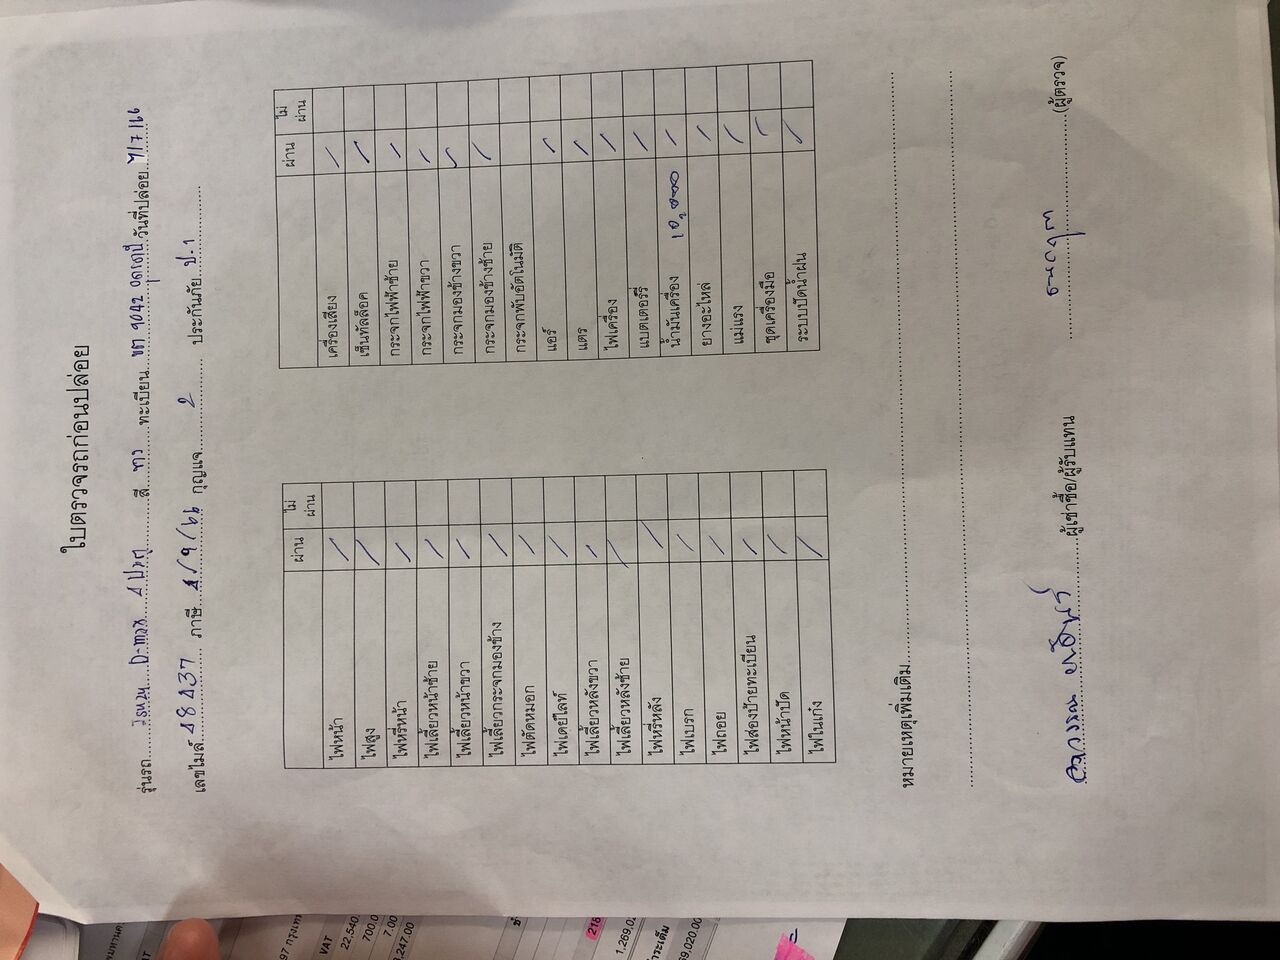 ใบตรวจรถก่อนปล่อย
รุ่นรถ.....D-max 4 ประตู.....สี ขาว.....ทะเบียน.....9042.....วันที่ปล่อย.....7/66
เลขไมล์.48437.....ภาษี.../9/66 กุญแจ.....2.....ประกันภัย...ป.1
ผ่าน ไม่ผ่าน
ไฟหน้า /
ไฟสูง /
ไฟหรี่หน้า /
ไฟเลี้ยวหน้าซ้าย /
ไฟเลี้ยวหน้าขวา /
ไฟเลี้ยวกระจกมองข้าง /
ไฟตัดหมอก /
ไฟเดย์ไลท์ /
ไฟเลี้ยวหลังขวา /
ไฟเลี้ยวหลังซ้าย /
ไฟหรี่หลัง /
ไฟเบรก /
ไฟถอย /
ไฟส่องป้ายทะเบียน /
ไฟหน้าปัด /
ไฟในเก๋ง /
ผ่าน ไม่ผ่าน
เครื่องเสียง /
เซ็นทรัลล็อค /
กระจกไฟฟ้าซ้าย /
กระจกไฟฟ้าขวา /
กระจกมองข้างขวา /
กระจกมองข้างซ้าย /
กระจกพับอัตโนมัติ
แอร์ /
แตร /
ไฟเครื่อง /
แบตเตอรี่ /
น้ำมันเครื่อง 10,000 /
ยางอะไหล่ /
แม่แรง /
ชุดเครื่องมือ /
ระบบปัดน้ำฝน /
หมายเหตุเพิ่มเติม
ผู้เช่าซื้อ/ผู้รับแทน
(ผู้ตรวจ)
97 กรุงเทพ
VAT
22,540
700.0
7.00
,247.00
218
1,269.0
69,020.00